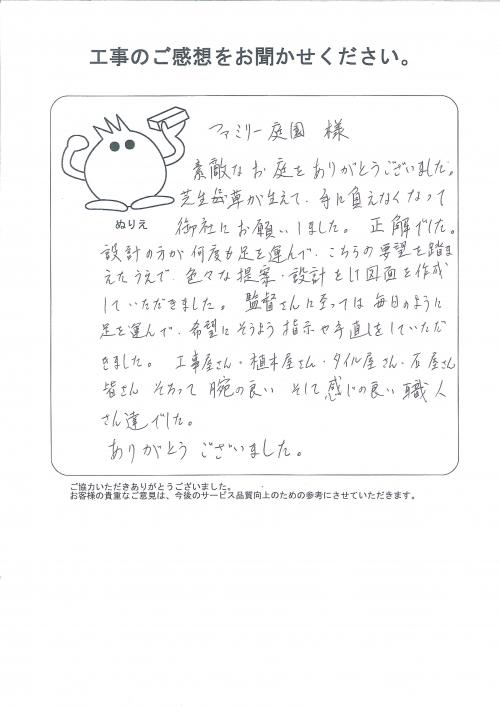 工事のご感想をお聞かせください。
ファミリー庭園 様
素敵なお庭をありがとうございました。
芝生や草が生えて、手に負えなくなって
ぬりえ
御社にお願いしました。 正解でした。
設計の方が何度も足を運んで、こちらの要望を踏ま
えたうえで、色々な提案・設計をし図面を作成
していただきました。 監督さんに至っては毎日のように
足を運んで、希望にそうよう指示や手直しをしていただ
きました。 工事屋さん・植木屋さん・タイル屋さん・石屋さん
皆さん そろって 腕の良い そして感じの良い 職人
さん達でした。
ありがとう ございました。
ご協力いただきありがとうございました。
お客様の貴重なご意見は、今後のサービス品質向上のための参考にさせていただきます。